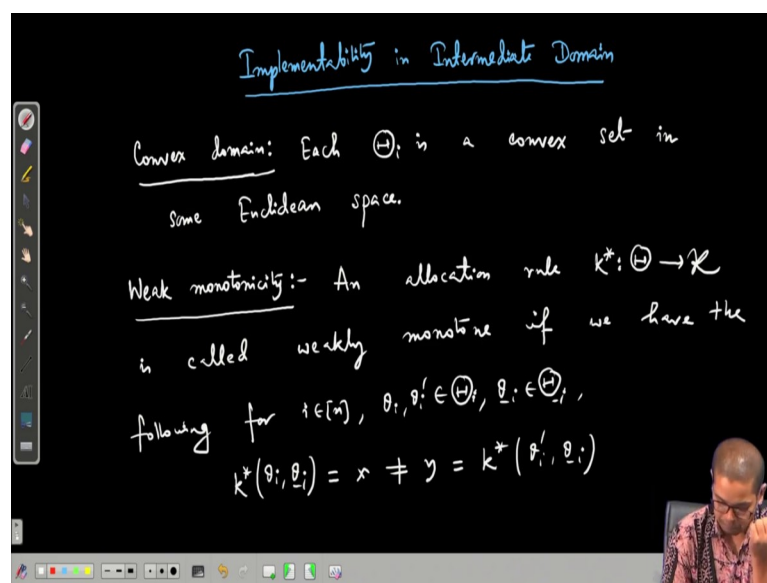 Implementability in Intermediate Domain
Convex domain: Each Θᵢ is a convex set in
some Euclidean space.
Weak monotonicity:- An allocation rule k*: Θ → 𝒦
is called weakly monotone if we have the
following for i∈[n], θᵢ, θᵢ' ∈ Θᵢ, θ₋ᵢ ∈ Θ₋ᵢ,
k*(θᵢ, θ₋ᵢ) = x ≠ y = k*(θᵢ', θ₋ᵢ)